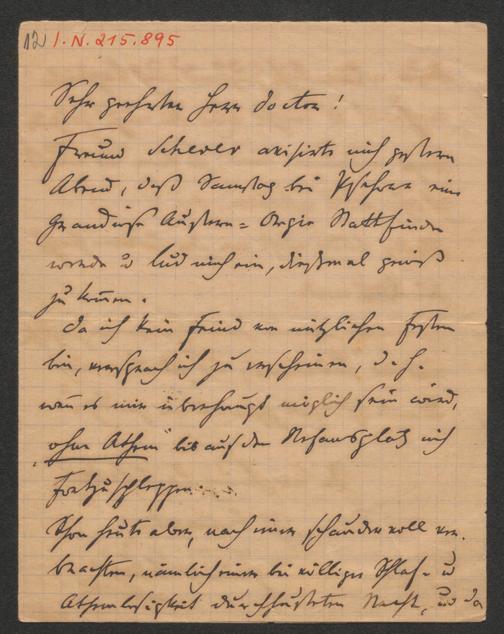 12) I.N. 215.895
Sehr geehrter Herr Doctor!
Freund avisirte mich gestern
Abend, daß Samstag bei Pschorr eine
grandiose Austern-Orgie stattfinden
werde u lud mich ein, dießmal gewiß
zu kommen.
Da ich kein Feind von nützlichen Festen
bin, versprach ich zu erscheinen, d. h.
wenn es mir überhaupt möglich sein wird,
"ohne Athem" bis auf den mich
fortzuschleppen.
Schon heute aber, nach einer schaudervoll ver-
brachten, nämlich einer bei völliger Schlaf- u
Athemlosigkeit durchhusteten Nacht, u da